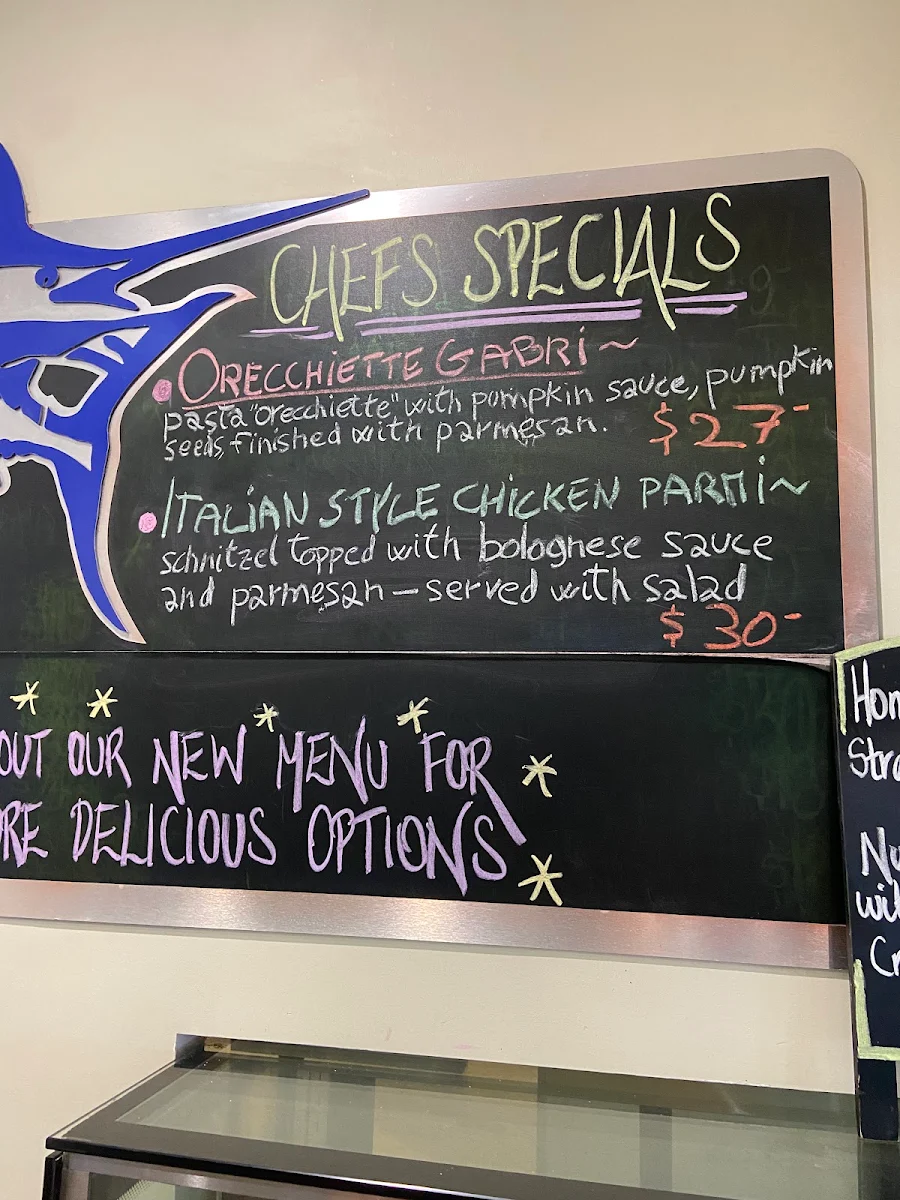 CHEFS SPECIALS
ORECCHiETTE GABRi~
pasta "orecchiette" with pumpkin sauce, pumpkin
seeds, finished with parmesan.
$27-
ITALiAN STYLE CHICKEN PARMi~
schnitzel topped with bolognese sauce
and parmesan – served with salad
$30-
OUR NEW MENU FOR
DELICIOUS OPTIONS